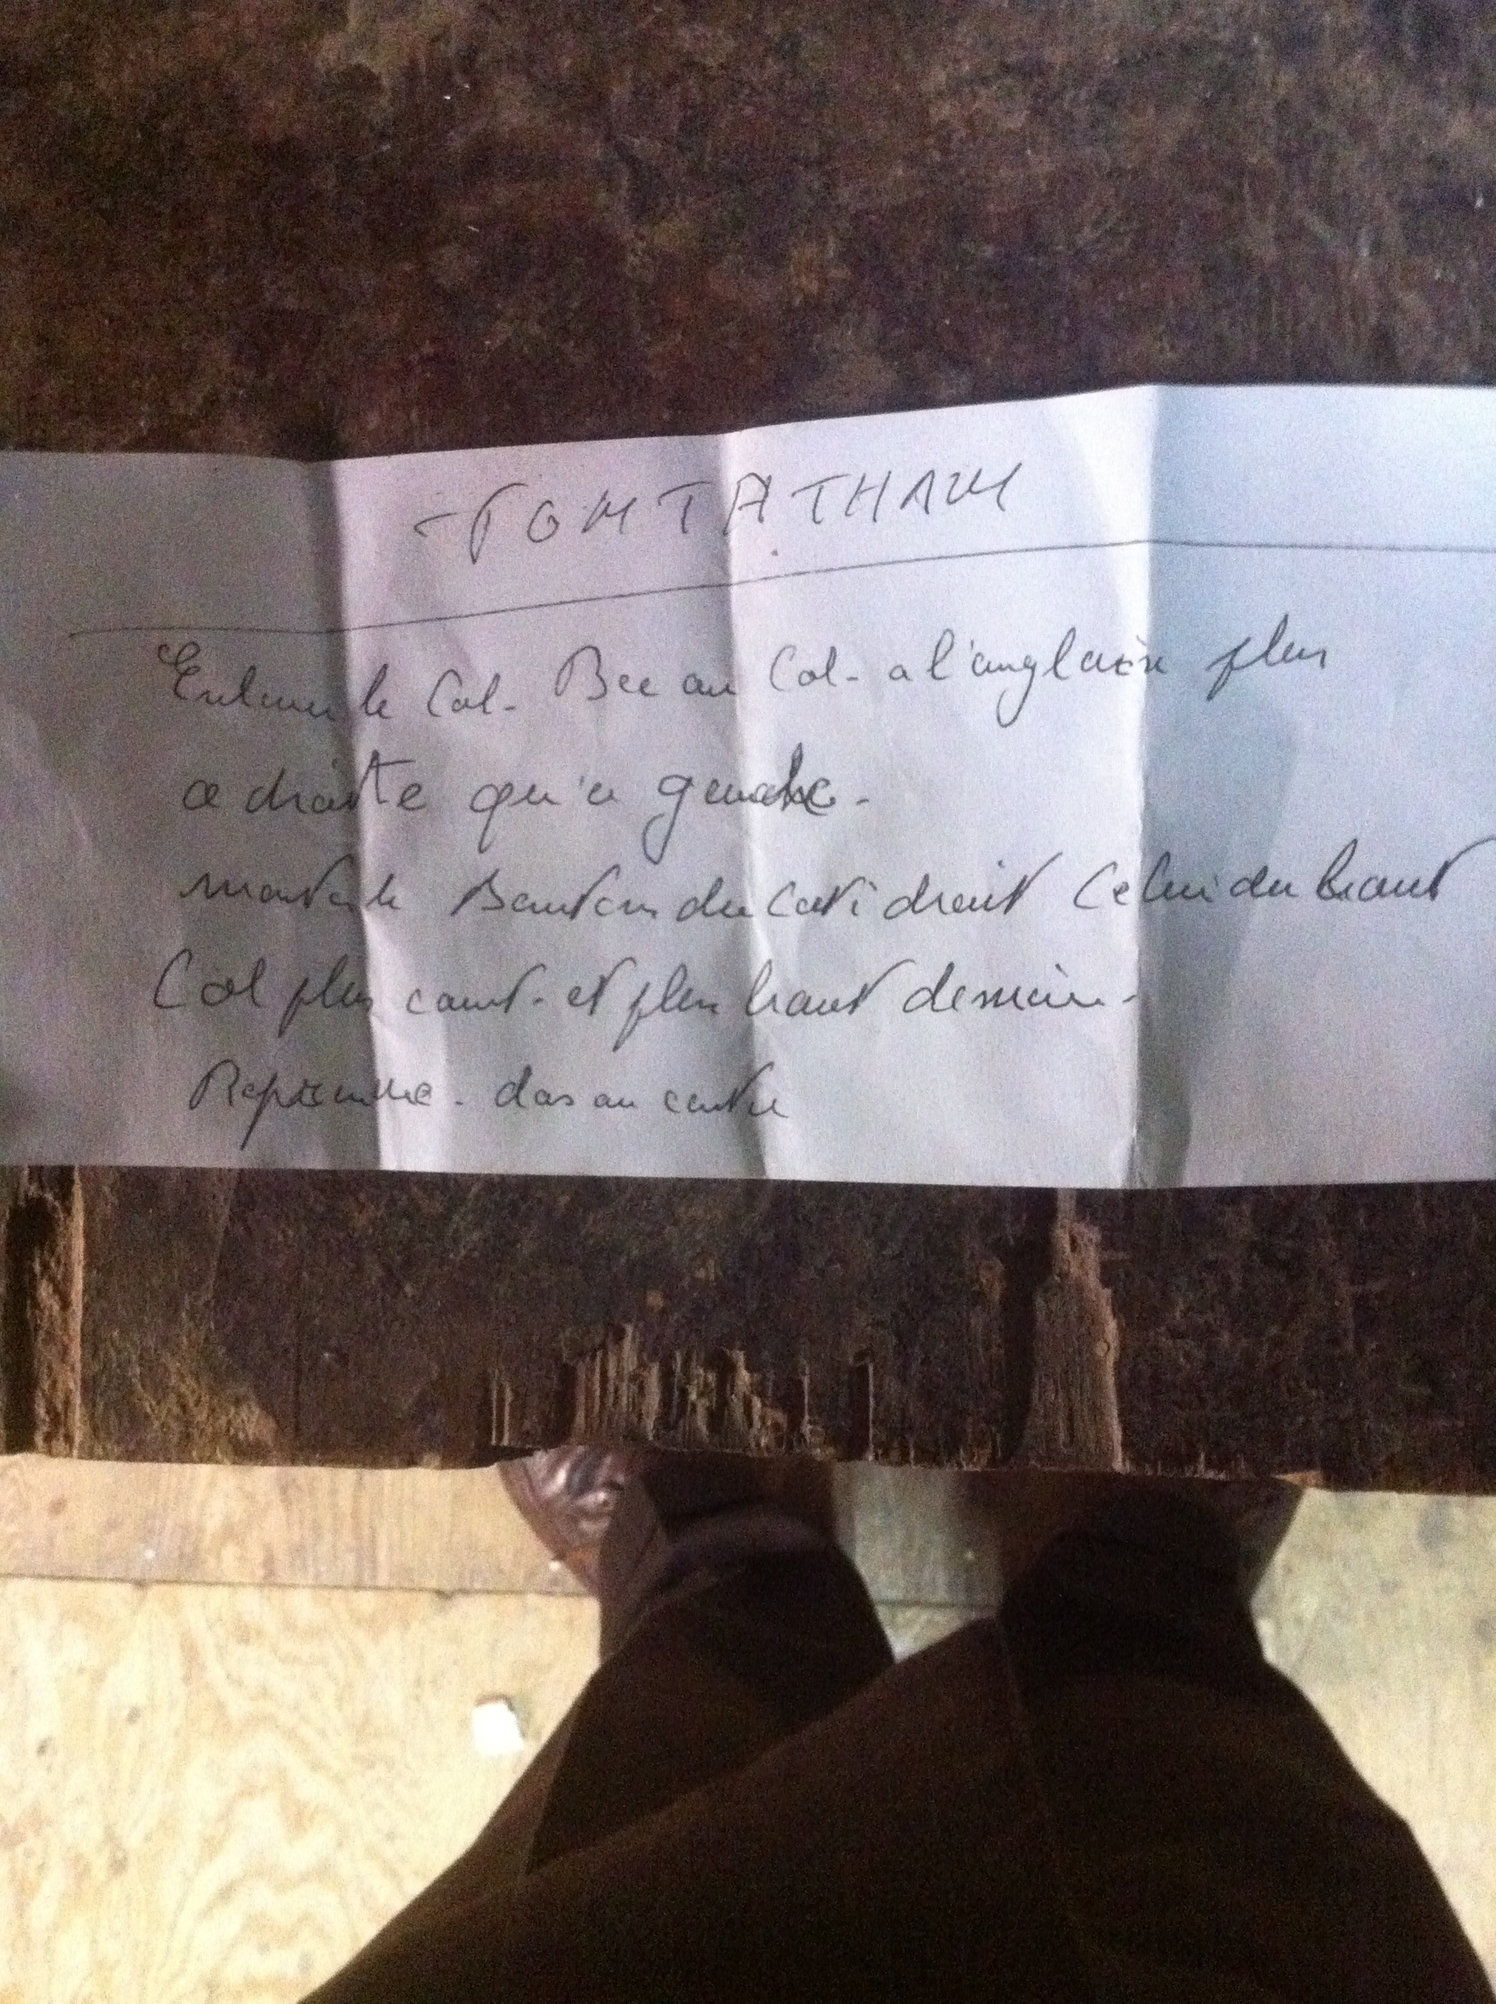 TOMTATHAM
Enlever le Col. Bec au Col. a l'anglaise plus
a droite qu'a gauche.
monter le Bouton du Coté droit Celui du haut
Col plus court. et plus haut derriere.
Reprendre. dos au centre